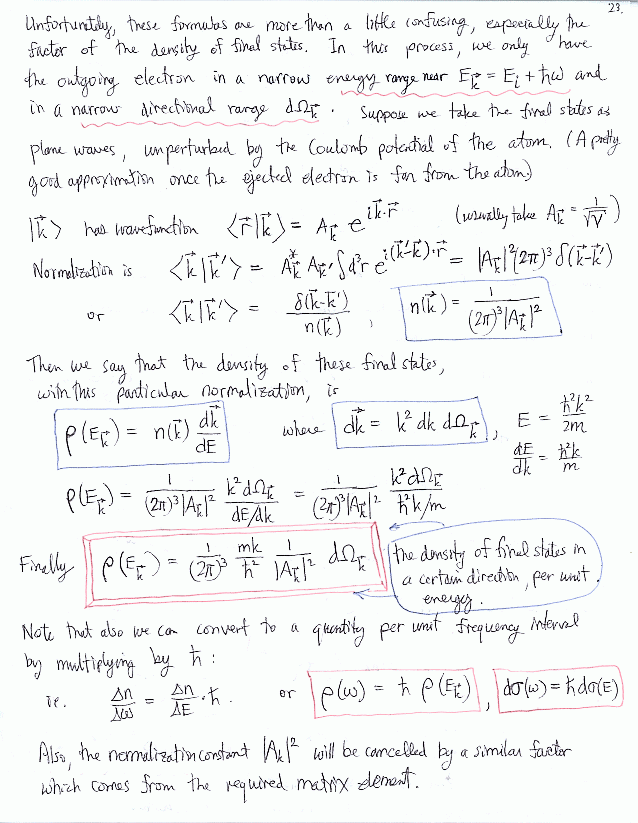 23.
Unfortunately, these formulas are more than a little confusing, especially the
factor of the density of final states. In this process, we only have
the outgoing electron in a narrow energy range near E_k⃗ = E_i + ħω and
in a narrow directional range dΩ_k⃗. Suppose we take the final states as
plane waves, unperturbed by the Coulomb potential of the atom. (A pretty
good approximation once the ejected electron is far from the atom.)
|k⃗> has wavefunction <r⃗|k⃗> = A_k⃗ e^{ik⃗·r⃗} (usually take A_k⃗ = 1/√V)
Normalization is <k⃗|k⃗'> = A_k⃗* A_k⃗' ∫d³r e^{i(k⃗'-k⃗)·r⃗} = |A_k⃗|²(2π)³ δ(k⃗-k⃗')
or <k⃗|k⃗'> = δ(k⃗-k⃗')/n(k⃗) , n(k⃗) = 1/((2π)³|A_k⃗|²)
Then we say that the density of these final states,
with this particular normalization, is
ρ(E_k⃗) = n(k⃗) dk⃗/dE where dk⃗ = k² dk dΩ_k⃗ , E = ħ²k²/2m
dE/dk = ħ²k/m
ρ(E_k⃗) = 1/((2π)³|A_k⃗|²) k²dΩ_k⃗/(dE/dk) = 1/((2π)³|A_k⃗|²) k²dΩ_k⃗/(ħ²k/m)
Finally ρ(E_k⃗) = 1/(2π)³ mk/ħ² 1/|A_k⃗|² dΩ_k⃗
the density of final states in
a certain direction, per unit
energy.
Note that also we can convert to a quantity per unit frequency interval
by multiplying by ħ :
ie. Δn/Δω = Δn/ΔE · ħ . or ρ(ω) = ħ ρ(E_k⃗) , dσ(ω) = ħ dσ(E)
Also, the normalization constant |A_k|² will be cancelled by a similar factor
which comes from the required matrix element.